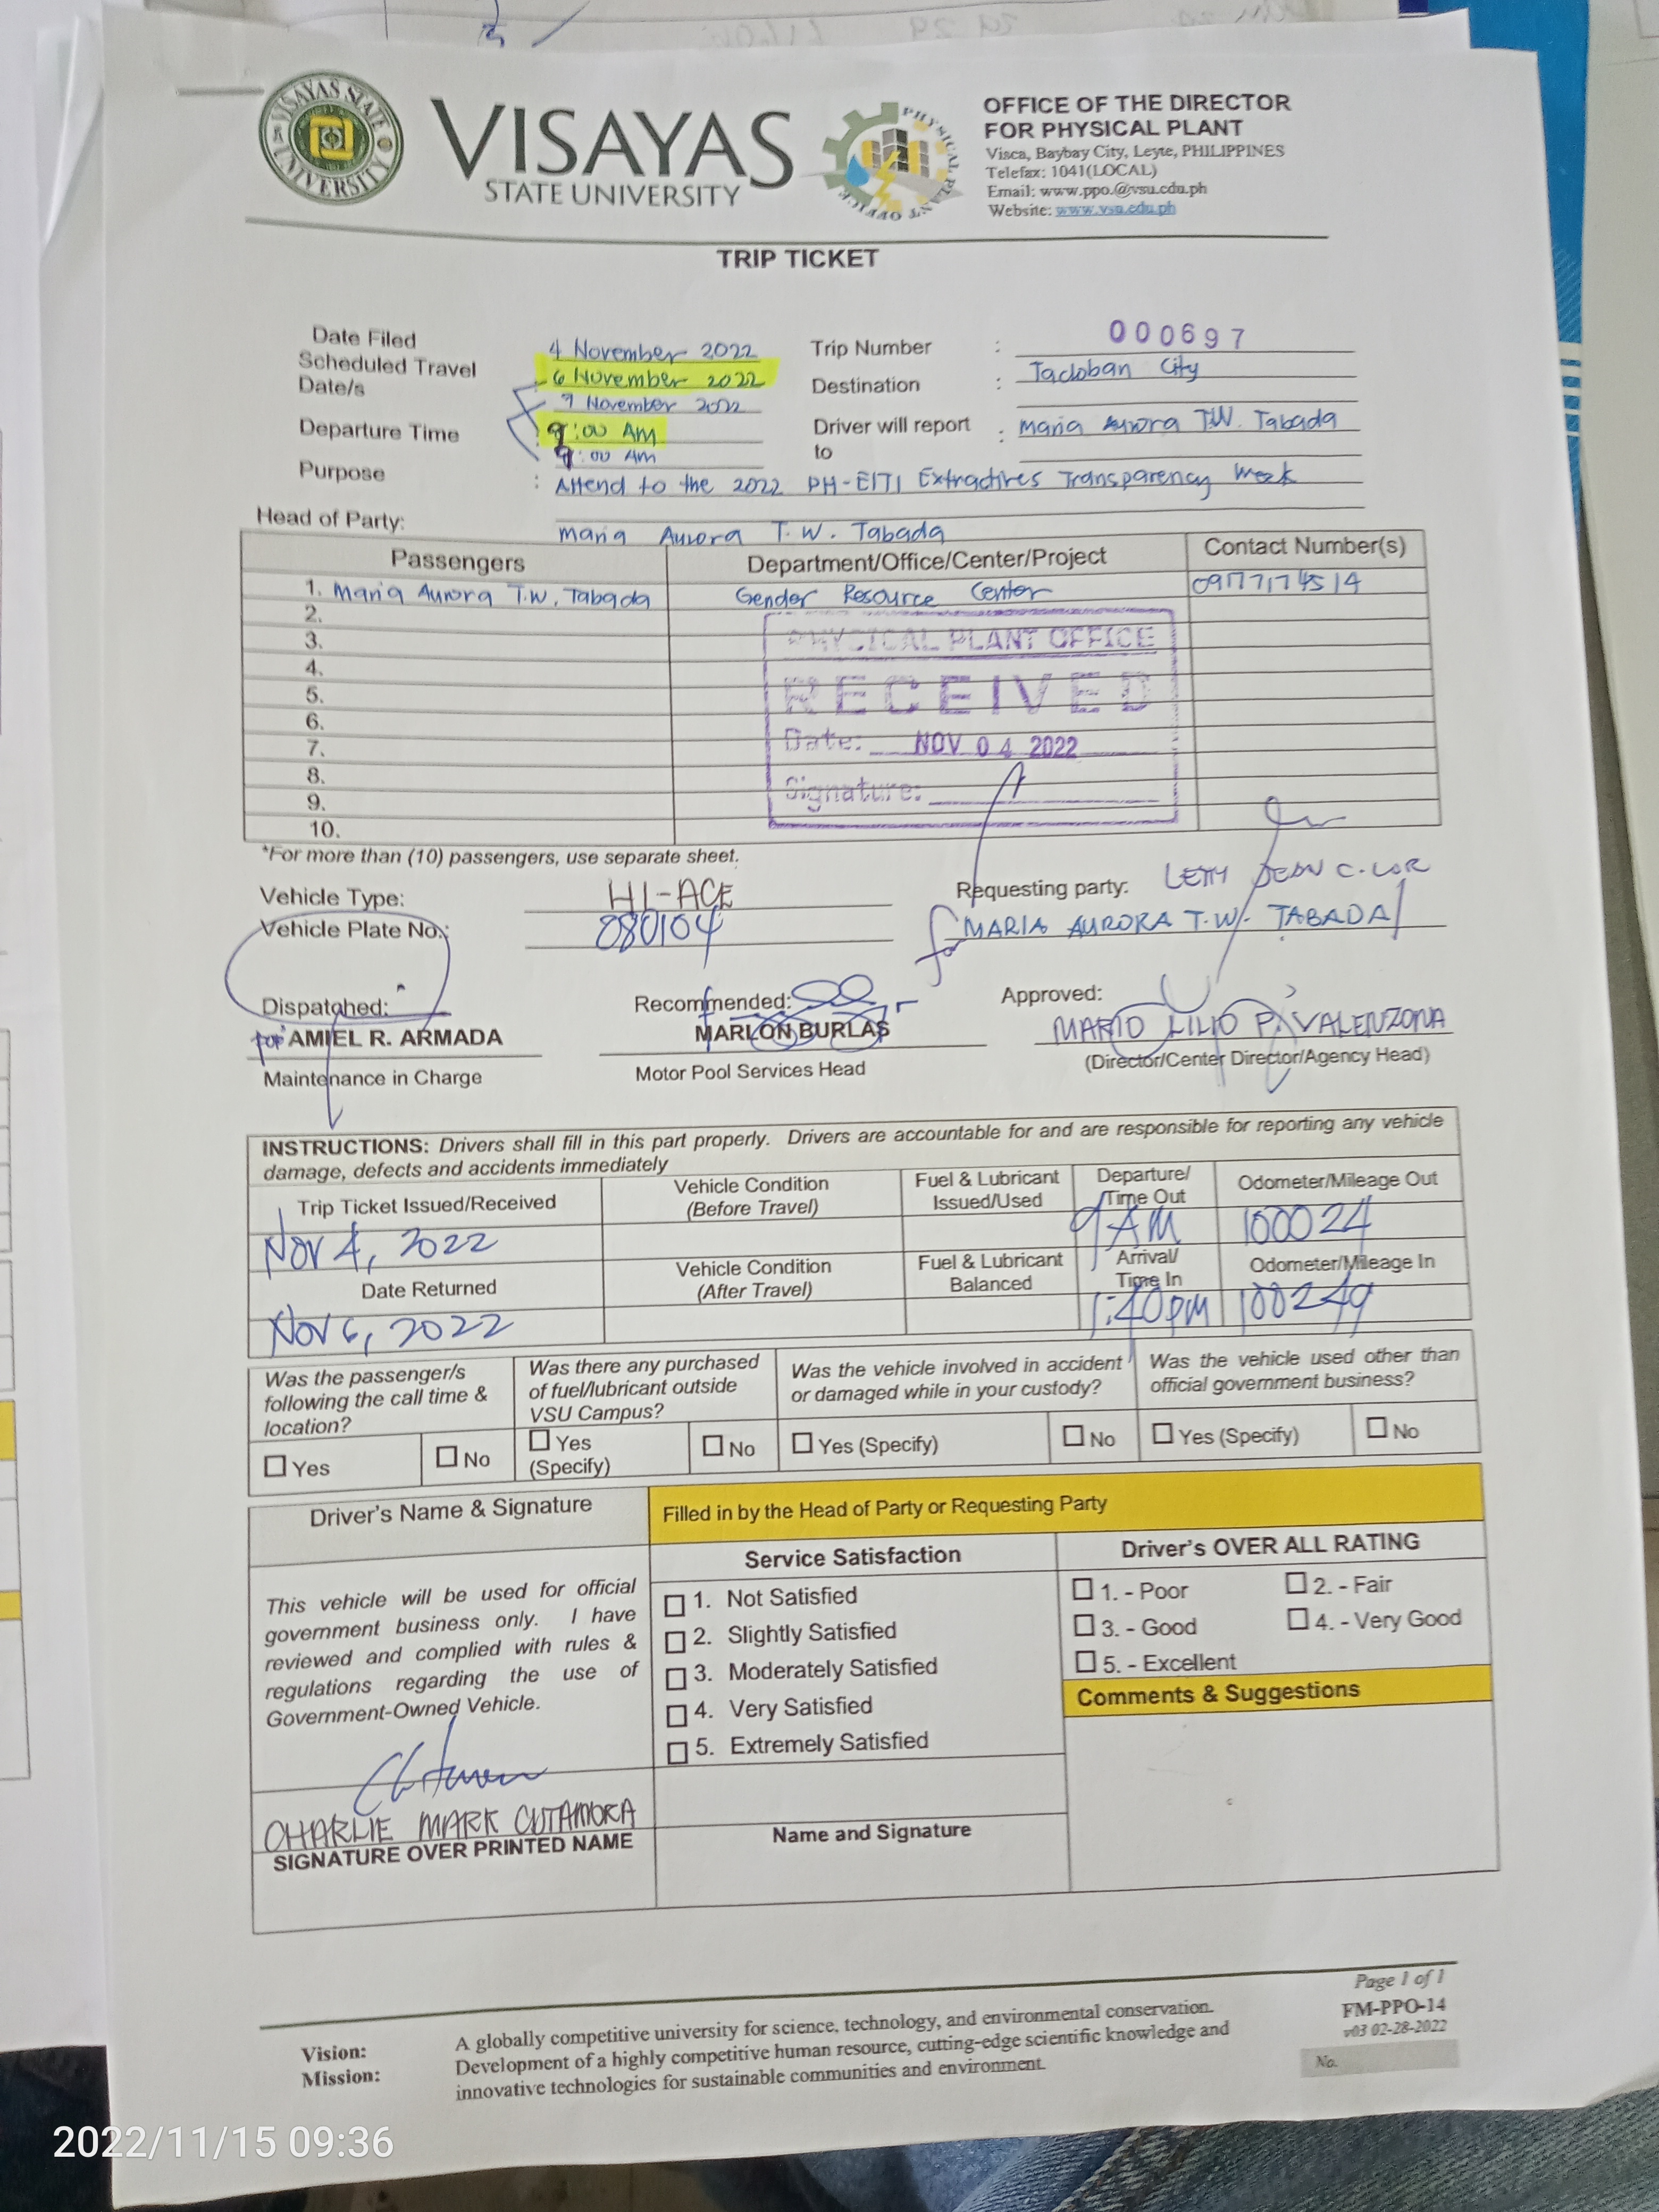 VISAYAS STATE UNIVERSITY
VISAYAS
STATE UNIVERSITY
PHYSICAL PLANT OFFICE
OFFICE OF THE DIRECTOR
FOR PHYSICAL PLANT
Visca, Baybay City, Leyte, PHILIPPINES
Telefax: 1041(LOCAL)
Email: www.ppo.@vsu.edu.ph
Website: www.vsu.edu.ph
TRIP TICKET
Date Filed 4 November 2022 Trip Number : 000697
Scheduled Travel Date/s 6 November 2022 Destination : Tacloban City
9 November 2022
Departure Time 9:00 AM Driver will report to : Maria Aurora T.W. Tabada
9:00 AM
Purpose : Attend to the 2022 PH-EITI Extractives Transparency Week
Head of Party: Maria Aurora T.W. Tabada
Passengers Department/Office/Center/Project Contact Number(s)
1. Maria Aurora T.W. Tabada Gender Resource Center 09177174514
2.
3.
4.
5.
6.
7.
8.
9.
10.
PHYSICAL PLANT OFFICE
RECEIVED
Date: NOV 04 2022
Signature:
*For more than (10) passengers, use separate sheet.
Vehicle Type: HI-ACE Requesting party: JEAN C.
Vehicle Plate No.: 080104 for MARIA AURORA T.W. TABADA
Dispatched: Recommended: Approved:
for AMIEL R. ARMADA MARLON BURLAS MARIO LILIO P. VALENZONA
Maintenance in Charge Motor Pool Services Head (Director/Center Director/Agency Head)
INSTRUCTIONS: Drivers shall fill in this part properly. Drivers are accountable for and are responsible for reporting any vehicle
damage, defects and accidents immediately
Trip Ticket Issued/Received Vehicle Condition (Before Travel) Fuel & Lubricant Issued/Used Departure/ Time Out Odometer/Mileage Out
Nov 4, 2022 9 AM 100024
Date Returned Vehicle Condition (After Travel) Fuel & Lubricant Balanced Arrival/ Time In Odometer/Mileage In
Nov 6, 2022 1:40pm 100249
Was the passenger/s following the call time & location? Was there any purchased of fuel/lubricant outside VSU Campus? Was the vehicle involved in accident or damaged while in your custody? Was the vehicle used other than official government business?
Yes No Yes (Specify) No Yes (Specify) No Yes (Specify) No
Driver's Name & Signature Filled in by the Head of Party or Requesting Party
Service Satisfaction Driver's OVER ALL RATING
This vehicle will be used for official
government business only. I have
reviewed and complied with rules &
regulations regarding the use of
Government-Owned Vehicle.
1. Not Satisfied
2. Slightly Satisfied
3. Moderately Satisfied
4. Very Satisfied
5. Extremely Satisfied
1. - Poor 2. - Fair
3. - Good 4. - Very Good
5. - Excellent
Comments & Suggestions
CHARLIE MARK CUTAMORA
SIGNATURE OVER PRINTED NAME
Name and Signature
Page 1 of 1
FM-PPO-14
v03 02-28-2022
No.
Vision: A globally competitive university for science, technology, and environmental conservation.
Mission: Development of a highly competitive human resource, cutting-edge scientific knowledge and
innovative technologies for sustainable communities and environment.
2022/11/15 09:36